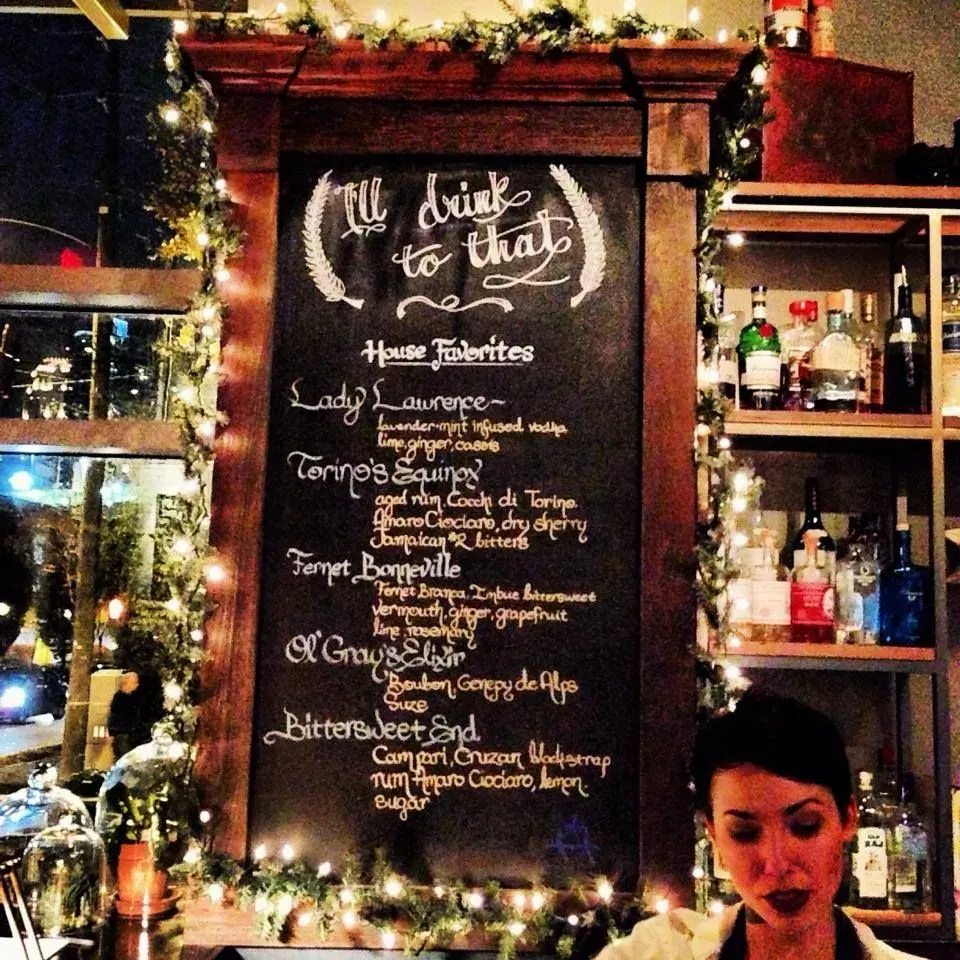 I'll drink
to that
House Favorites
Lady Lawrence~
lavender-mint infused vodka
lime, ginger, cassis
Torino's Equinox
aged rum, Cocchi di Torino,
Amaro Ciociaro, dry sherry
Jamaican #2 bitters
Fernet Bonneville
Fernet Branca, Imbue bittersweet
vermouth, ginger, grapefruit
lime, rosemary
Ol' Gray's Elixir
Boubon, Genepy de Alps
Suze
Bittersweet End
Campari, Cruzan blackstrap
rum Amaro Ciociaro, lemon
sugar